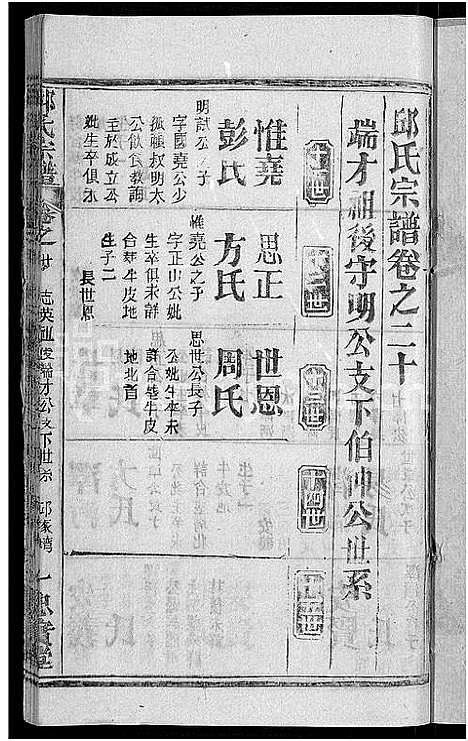 邱氏宗譜卷之二十
端才祖後守明公支下伯冲公世系
十一世
十二世
十三世
十四世
十五世
惟堯
彭氏
明試公之子
字國堯公少
孤賴叔明太
公飲食教誨
主於成立公
妣生卒俱水
思正
方氏
惟堯公之子
字正山公妣
生卒俱未詳
合葬牛皮地
生子二
長世恩
世恩
周氏
思世公長子
公妣生卒未
詳合葬牛皮
地北首
邱氏宗譜
卷之廿
志英祖後端才公支下世系
邱家灣
一
忠實堂